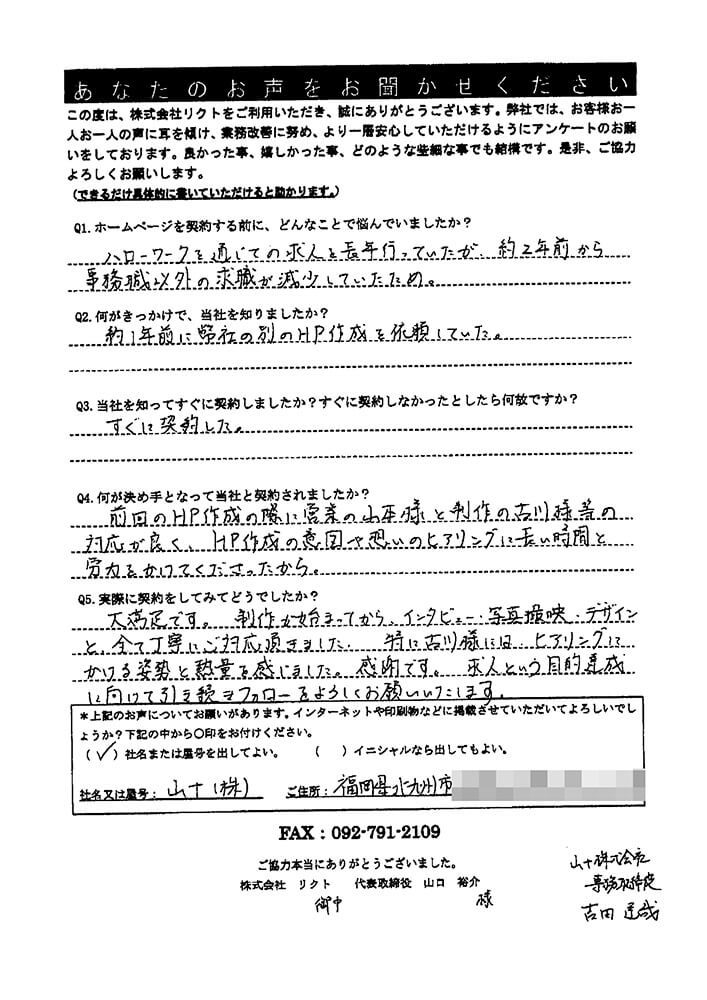 あなたのお声をお聞かせください
この度は、株式会社リクトをご利用いただき、誠にありがとうございます。弊社では、お客様お一
人お一人の声に耳を傾け、業務改善に努め、より一層安心していただけるようにアンケートのお願
いをしております。良かった事、嬉しかった事、どのような些細な事でも結構です。是非、ご協力
よろしくお願いします。
(できるだけ具体的に書いていただけると助かります。)
Q1. ホームページを契約する前に、どんなことで悩んでいましたか？
ハローワークを通じての求人を長年行っていたが、約2年前から
事務職以外の求職が減少していたため。
Q2. 何がきっかけで、当社を知りましたか？
約1年前に弊社の別のHP作成を依頼していた。
Q3. 当社を知ってすぐに契約しましたか？すぐに契約しなかったとしたら何故ですか？
すぐに契約した。
Q4. 何が決め手となって当社と契約されましたか？
前回のHP作成の際に営業の山本様と制作の古川様等の
対応が良く、HP作成の意図や想いのヒアリングに長い時間と
労力をかけてくださったから。
Q5. 実際に契約をしてみてどうでしたか？
大満足です。制作が始まってから、インタビュー・写真撮映・デザイン
と、全て丁寧にご対応頂きました。特に古川様には、ヒアリングに
かける姿勢と熱量を感じました。感謝です。求人という目的達成
に向けて引き続きフォローをよろしくお願いいたします。
＊上記のお声についてお願いがあります。インターネットや印刷物などに掲載させていただいてよろしいでし
ょうか？下記の中から〇印をお付けください。
(✓)社名または屋号を出してよい。 ( )イニシャルなら出してもよい。
社名又は屋号： 山十(株) ご住所： 福岡県北九州市
FAX：092-791-2109
ご協力本当にありがとうございました。
株式会社 リクト 代表取締役 山口 裕介
御中 様
山十株式会社
専務取締役
吉田 達哉